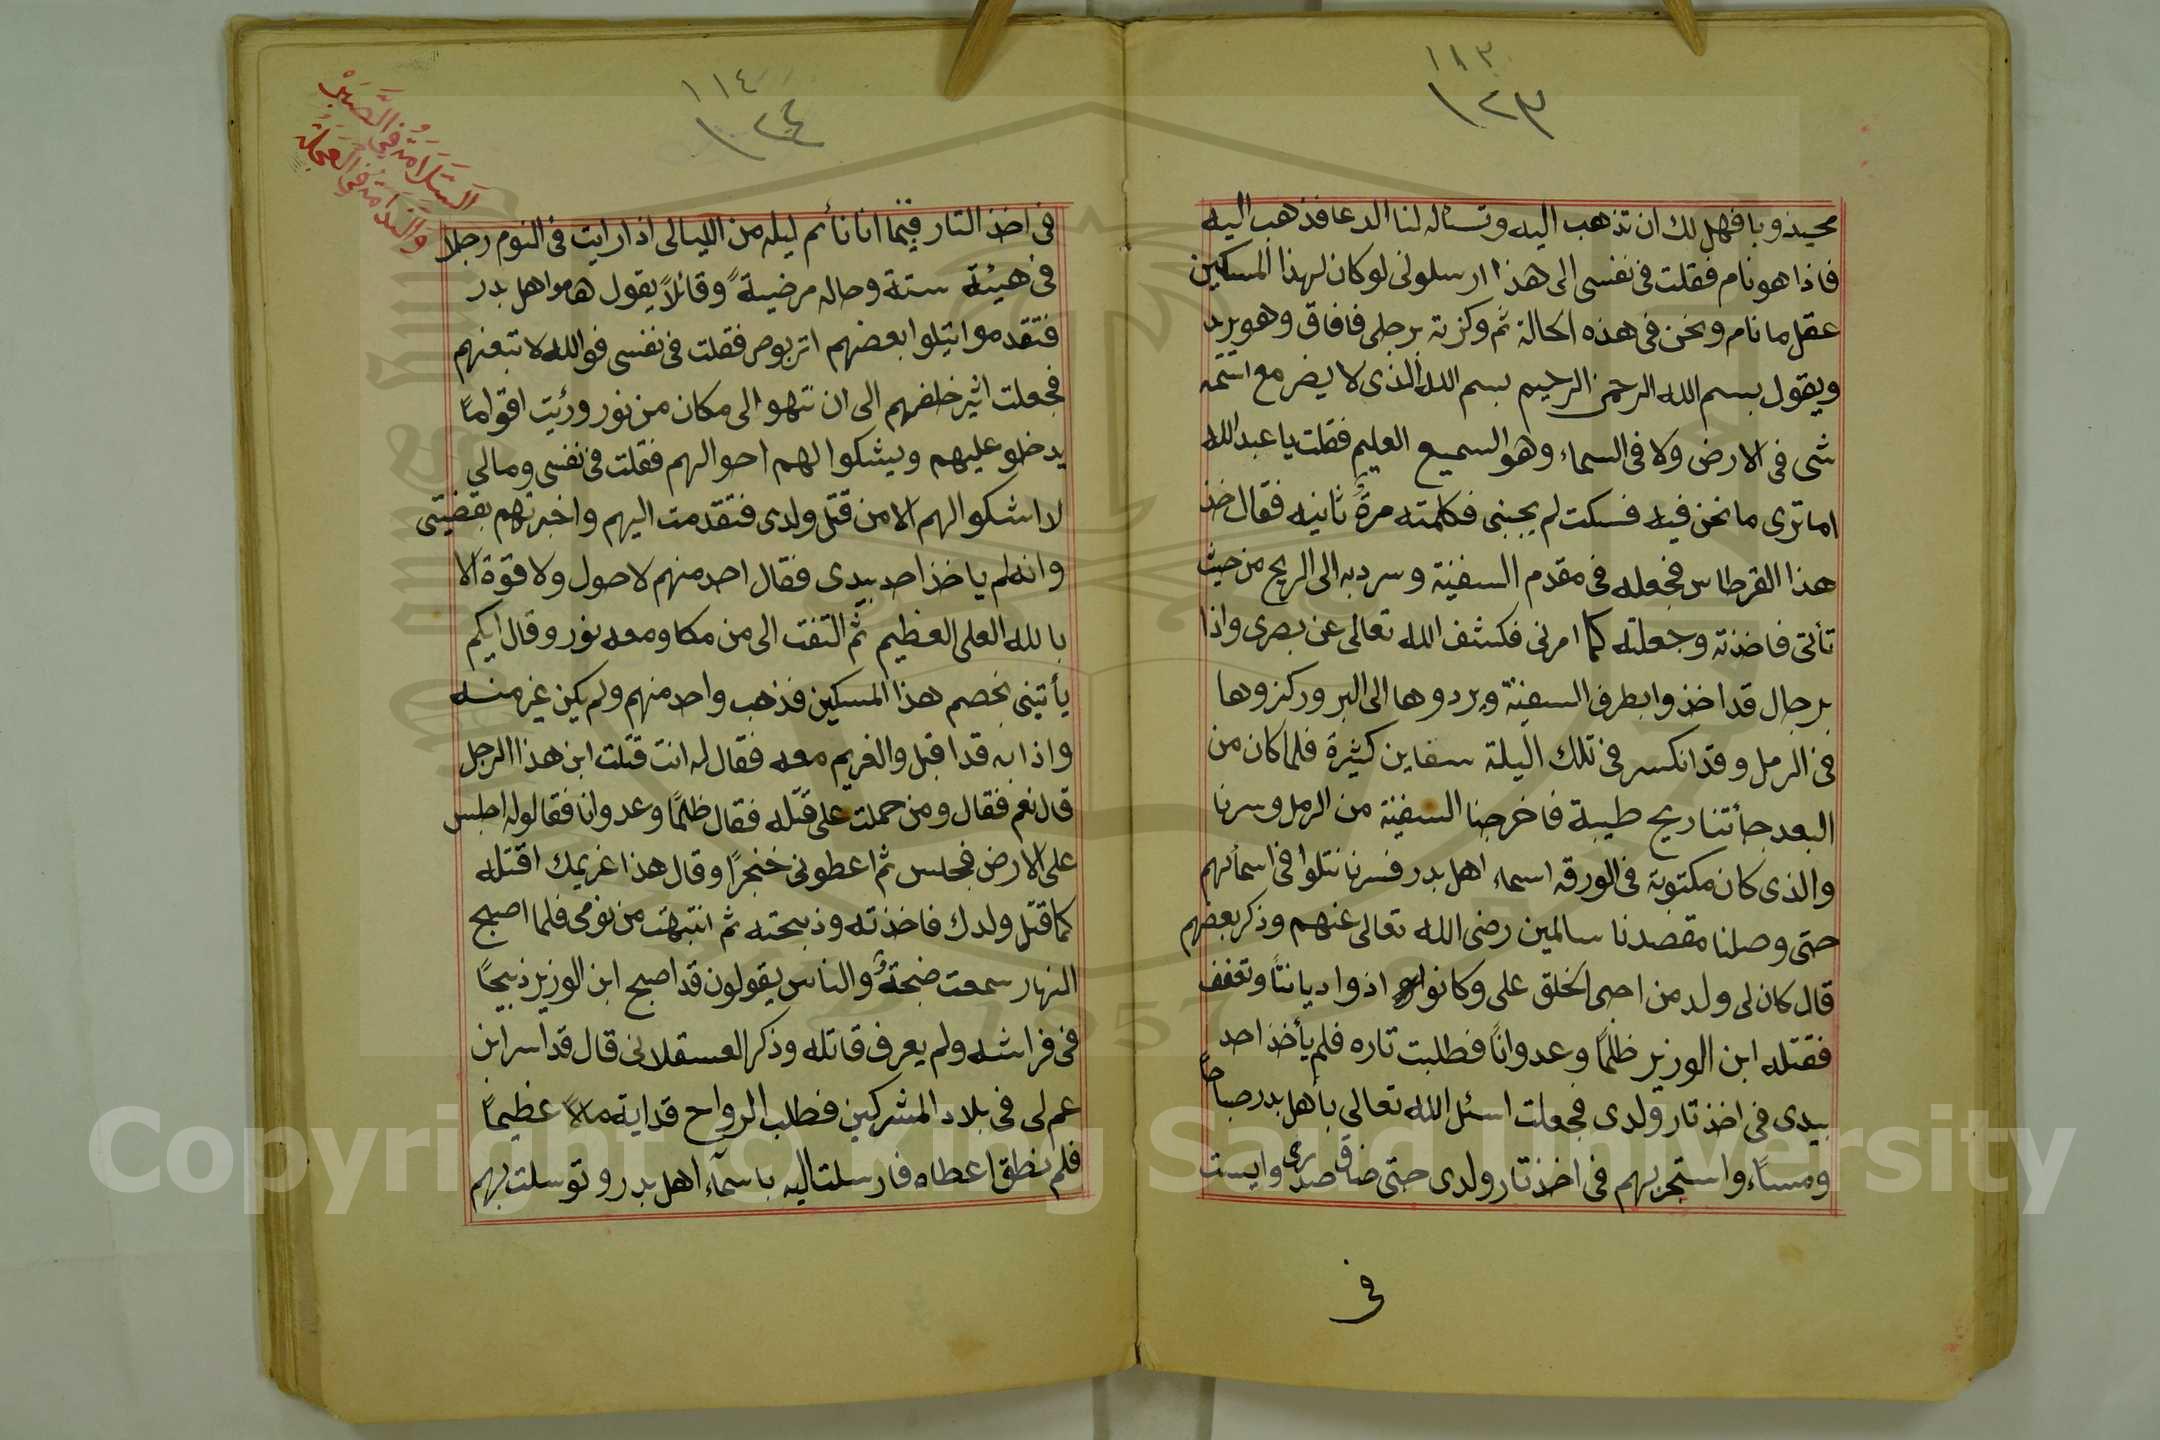 ١١٣
١٢٣
مجيذوبا فهل لك ان تذهب اليه وتسئاله لنا الدعا فذهب اليه
فاذا هو نام فقلت فى نفسى الى هذا ارسلونى لو كان لهذا المسكين
عقل ما نام ونحن فى هذه الحالة ثم وكزته برجلى فافاق وهو يريد
ويقول بسم الله الرحمن الرحيم بسم الله الذى لا يضر مع اسمه
شى فى الارض ولا فى السماء وهو السميع العليم فقلت يا عبد الله
اما ترى ما نحن فيه فسكت لم يجبنى فكلمته مرة ثانيه فقال خذ
هذا القرطاس فجعله فى مقدم السفينة وسر به الى الريح من حيث
تأتى فاخذته وجعلته كما امرنى فكشف الله تعالى عن بصرى واذا
برجال قد اخذوا بطرف السفينة ويردوها الى البر وركزوها
فى الرمل وقد انكسر فى تلك اليلة سفاين كثيرة فلما كان من
البعد جأتنا ريح طيبة فاخرجنا السفينة من الرمل وسرنا
والذى كان مكتوبة فى الورقه اسماء اهل بدر فسرنا نتلوا فى اسمائهم
حتى وصلنا مقصدنا سالمين رضى الله تعالى عنهم وذكر بعضهم
قال كان لى ولد من احبى الخلق على وكانوا اذوا ديانتاً وتعفف
فقتله ابن الوزير ظلمًا وعدوانًا فطلبت تاره فلم يأخذ احد
بيدى فى اخذ تار ولدى فجعلت اسئل الله تعالى بأهل بدر صباحاً
ومساًء واستجر بهم فى اخذ تار ولدى حتى ضاق صدرى وايست
فى
١١٤
١٢٤
السَلَامَة في الصَبْر
والنَدَامَة في العجلة
فى اخذ التار فبينما انا نأئم ليله من الليالى اذا رايت فى النوم رجلا
فى هيئة ستة وحاله مرضيةً وقائلاً يقول هاموا هل بدر
فتقدموا بعضهم فقلت فى نفسى فوالله لا تبعنهم
فجعلت اثير خلفهم الى ان نتهو الى مكان من نور ورئيت اقواماً
يدخلو عليهم ويشكوا لهم احوالهم فقلت فى نفسى ومالى
لا اشكوا لهم الامن قتل ولدى فتقدمت اليهم واخبرتهم بقضيتى
وانه لم ياخذ احد بيدى فقال احد منهم لا حول ولا قوة الا
بالله العلى العظيم ثم التفت الى من مكا ومعه نور وقال ايكم
يأتينى بخصم هذا المسكين فذهب واحد منهم ولم يكن غير منه
واذا به قد اقبل والغريم معه فقال له انت قتلت ابن هذا الرجل
قال نعم فقال ومن حملت على قتله فقال ظلمًا وعدوانا فقالوله اجلس
على الارض فجلس ثم اعطونى خنجرًا وقال هذا غريمك اقتله
كما قتل ولدك فاخذته وذبحته ثم انتبهت من نومى فلما اصبح
النهار سمعت ضجةٌ والناس يقولون قد اصبح ابن الوزير ذبيحًا
فى فراشه ولم يعرف قاتله وذكر العسقلانى قال قد اسر ابن
عم لى فى بلاد المشركين فطلب الرواح فداية مالاً عظيماً
فلم نطق اعطاه فارسلت اليه باسمآء اهل بدر وتوسلت بهم
Copyright © King Saud University
1957